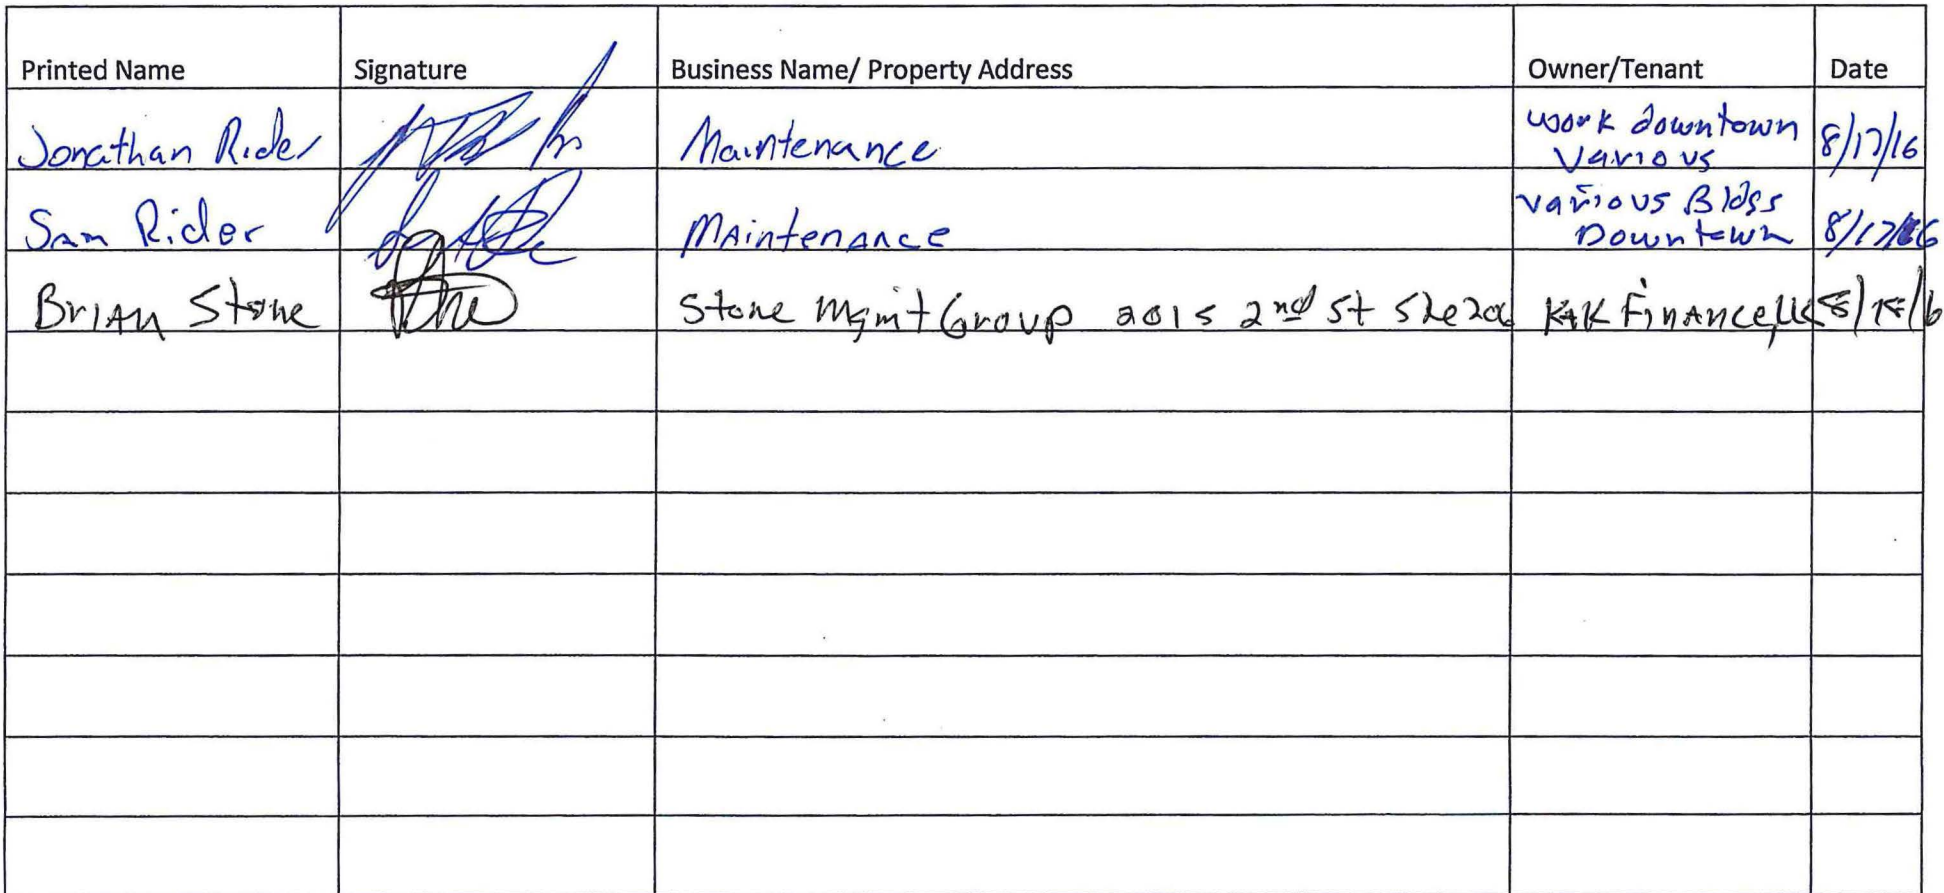 Printed Name Signature Business Name/ Property Address Owner/Tenant Date
Jonathan Rider Maintenance work downtown various 8/17/16
Sam Rider Maintenance various Bldgs Downtown 8/17/16
Brian Stone Stone Mgmt Group 201 S 2nd St Ste 200 K&K Finance, LLC 8/18/16